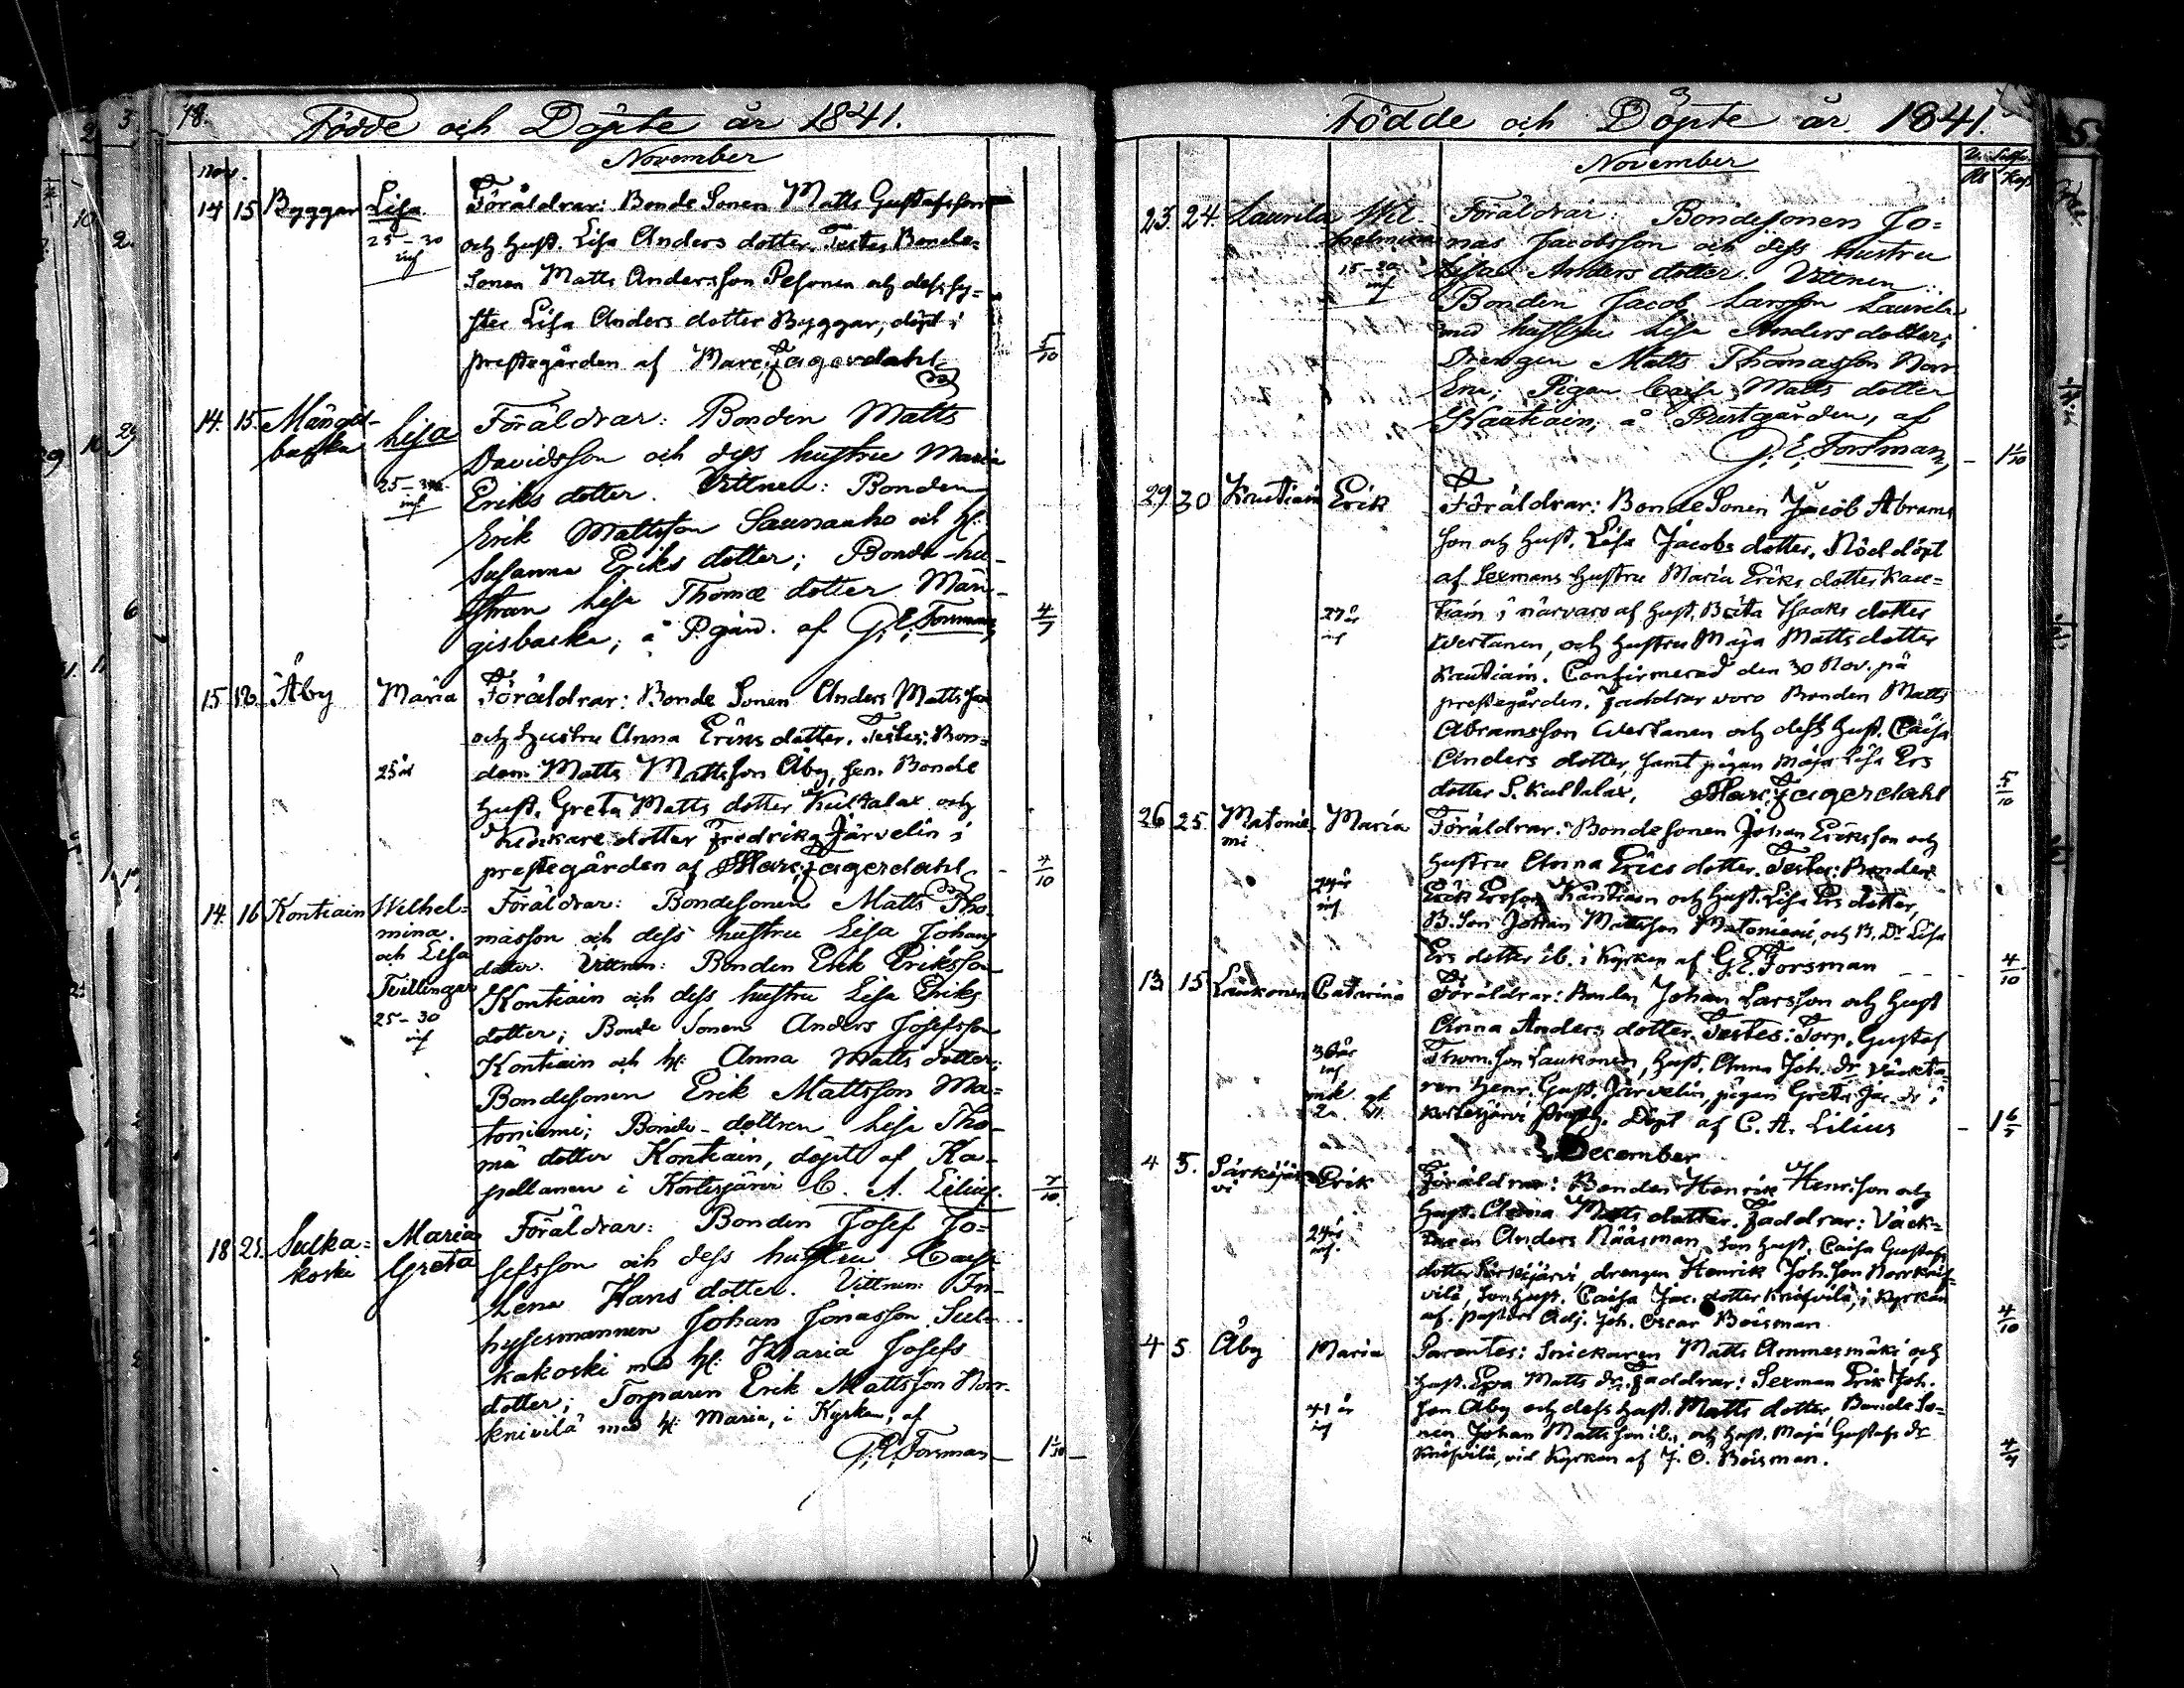 78. Födde och Döpte år 1841.
November
Nov.
14 15 Byggar Lisa. Föräldrar: Bonde Sonen Matts Gustafsson
25-30 och Hust. Lisa Anders dotter. Testes Bonde=
inf Sonen Matts Andersson Pesonen och dess sy=
ster Lisa Anders dotter Byggar, döpt i
prestegården af Marc. Fagerdahl 5/10
14. 15. Mängis- Lisa Föräldrar: Bonden Matts
backa Davidsson och dess hustru Maria
25-30 Eriks dotter. Vittnen: Bonden
inf Erik Mattsson Saunaaho och H:
Susanna Eriks dotter; Bonde-hu-
strun Lisa Thomæ dotter Män-
gisbacka; å P.gård. af G. E. Forsman, 4/7
15 16 Åby Maria Föräldrar: Bonde Sonen Anders Mattsson
och Hustru Anna Eriks dotter. Testes: Bon=
25 år den Matts Mattsson Åby, sen. Bonde
Hust. Greta Matts dotter Kultalax och
Klockare dotter Fredrika Järvelin i
prestegården af Marc. Fagerdahl - 4/10
14. 16 Kontiain Wilhel= Föräldrar: Bondesonen Matts Tho-
mina. masson och dess hustru Lisa Johans
och Lisa dotter. Vittnen: Bonden Erik Eriksson
Tvillingar Kontiain och dess hustru Lisa Eriks
25-30 dotter; Bonde Sonen Anders Josefsson
inf Kontiain och H: Anna Matts dotter;
Bondesonen Erik Mattsson Ma=
toniemi; Bonde-dottren Lisa Tho-
mä dotter Kontiain, döpte af Ka-
pellanen i Kortesjärvi C. A. Lilius. 7/10
18 21. Sulka= Maria Föräldrar: Bonden Josef Jo=
koski Greta sefsson och dess hustru Caisa
Lena Hans dotter. Vittnen: In-
hysesmannen Johan Jonasson Sul-
kakoski med H: Maria Josefs
dotter; Torparen Erik Mattsson Norr-
knivilä med H: Maria, i Kyrkan, af
G. E. Forsman - 1 1/10 -
Födde och Döpte år 1841.
November
23. 24. Laurila Wil- Föräldrar: Bondesonen Jo=
helmina nas Jacobsson och dess hustru
15-20 Lisa Anders dotter. Vittnen:
inf Bonden Jacob Larsson Laurila
med hustru Lisa Anders dotter;
Drengen Matts Thomasson Norr
Ena; Pigan Caisa Matts dotter
Kautiain, å Prestgården, af
G. E. Forsman, - 1 1/10
29 30 Kautiain Erik Föräldrar: Bonde Sonen Jacob Abrams
son och Hust. Lisa Jacobs dotter. Nöddöpt
af Sexmans Hustru Maria Eriks dotter Kau=
27 år tiain i närvaro af Hust. Brita Isaaks dotter
inf Wertanen, och Hustru Maja Matts dotter
Kautiain. Confirmerad den 30 Nov. på
prestegården. Faddrar voro Bonden Matts
Abramsson Wertanen och dess Hust. Caisa
Anders dotter, samt pigan Maja Lisa Ers
dotter S. Kultalax. Marc. Fagerdahl 5/10
26 25. Matonie- Maria Föräldrar: Bondesonen Johan Eriksson och
mi Hustru Anna Erics dotter. Testes: Bonden
24 år Erik Ersson Kautiain och Hust. Lisa Ers dotter,
inf B. Son Johan Mattsson Matoniemi, och B. Dr Lisa
Ers dotter ib. i Kyrkan af G. E. Forsman - - - 4/10
13 15 Laukonen Catarina Föräldrar: Bonden Johan Larsson och Hust
Anna Anders dotter. Testes: Torp. Gustaf
36 år Thom. Son Laukonen, Hust. Anna Joh. Dr Väckta-
inf ren Henr. Gust. Järvelin, pigan Greta Jac. Dr i
Kortesjärvi. Döpt af C. A. Lilius - 1 6/7
December
4 5. Särkijär- Erik Föräldrar: Bonden Henrik Henr. Son och
vi Hust. Anna Matts dotter. Faddrar: Väck=
24 år taren Anders Nääsman, Hust. Caisa Gustafs
inf. dotter Särkijärvi, drengen Henrik Joh. Son Norrknif-
vilä, Hust. Caisa Jac. dotter Knifvilä, i Kyrkan
af Pastors Adj. Joh. Oscar Boisman. 4/10
4 5 Åby Maria Parentes: Snickaren Matts Ammesmäki och
Hust. Eva Matts dr. Faddrar: Sexman Erik Joh.
41 år Son Åby och dess Hust. Matts dotter, Bonde So=
inf nen Johan Mattsson ib., och Hust. Maja Gustafs dr
Knifvilä, vid Kyrkan af J. O. Boisman. 4/7